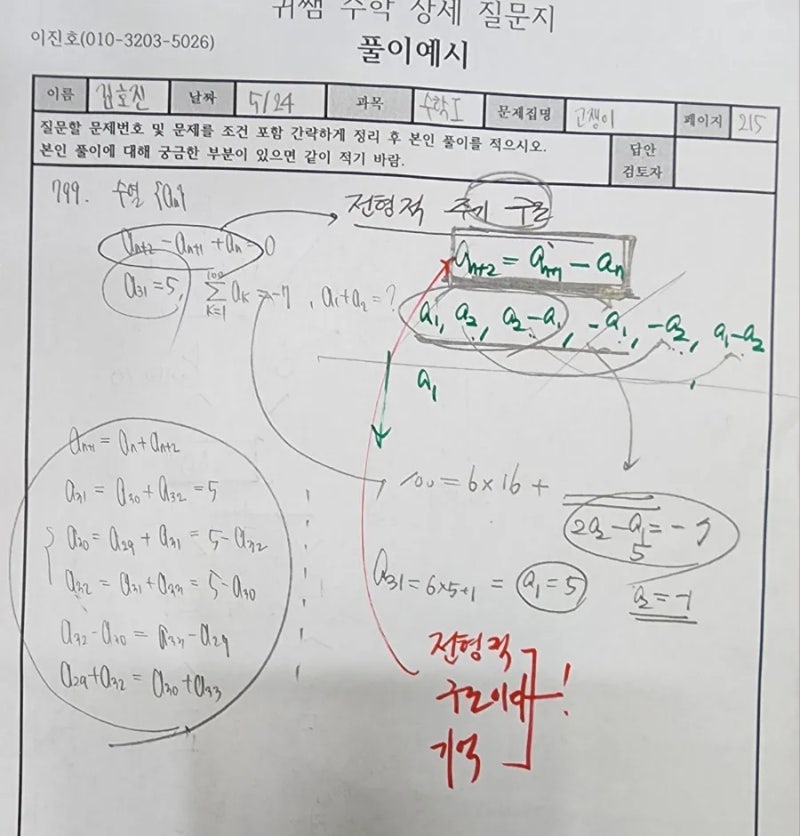 귀쌤 수학 상세 질문지
이진호(010-3203-5026)
풀이예시
이름 김호진 날짜 5/24 과목 수학I 문제집명 고쟁이 페이지 215
질문할 문제번호 및 문제를 조건 포함 간략하게 정리 후 본인 풀이를 적으시오.
본인 풀이에 대해 궁금한 부분이 있으면 같이 적기 바람.
답안
검토자
799. 수열 {an}
an+2 - an+1 + an = 0
a31 = 5, ∑ K=1 100 aK = -7, a1+a2 = ?
전형적 주기 구조
an+2 = an+1 - an
a1, a2, a2-a1, -a1, -a2, a1-a2
a1
an+1 = an + an+2
a31 = a30 + a32 = 5
a30 = a29 + a31 = 5 - a32
a32 = a31 + a33 = 5 - a30
a32 - a30 = a33 - a29
a29 + a32 = a30 + a33
100 = 6×16 +
2a2 - a1 = -7
5
a31 = 6×5+1 = a1 = 5
a2 = -1
전형적
구조이다
기억
!